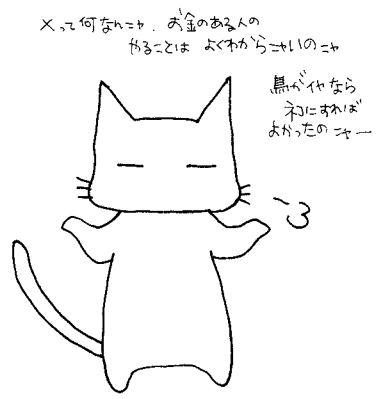 Xって何なんニャ. お金のある人の
やることは よくわからニャいのニャ
鳥がイヤなら
ネコにすれば
よかったのニャー